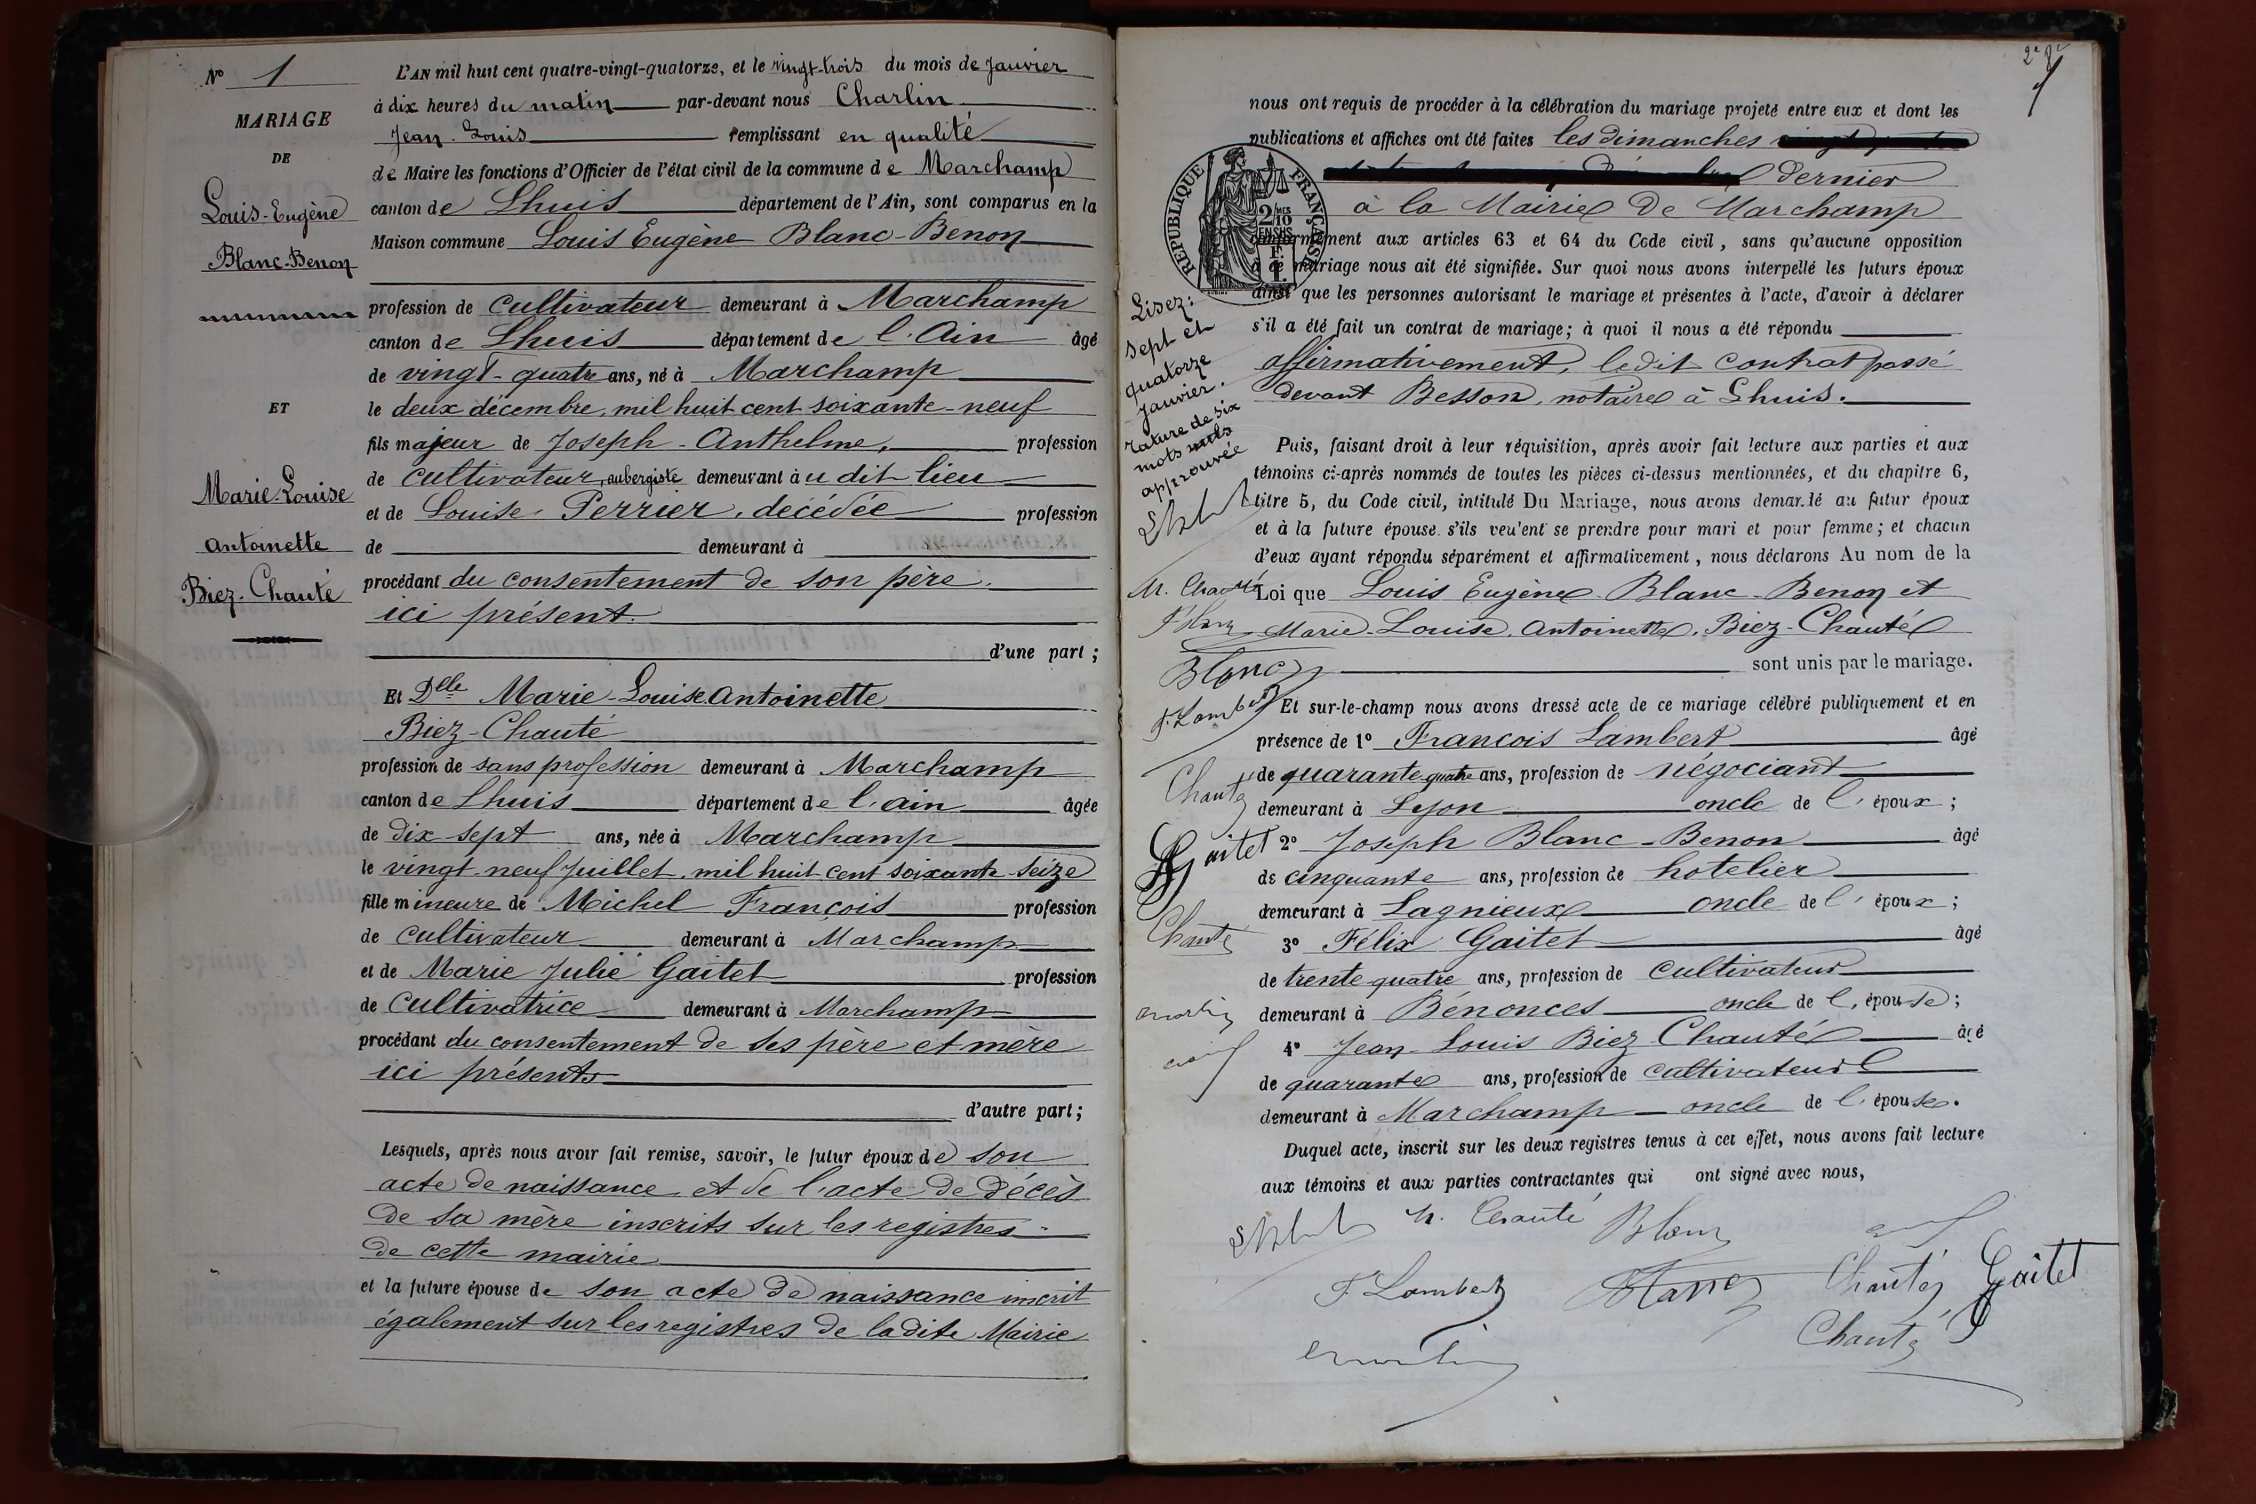 N° 1
MARIAGE
DE
Louis-Eugène
Blanc-Benon
ET
Marie-Louise
Antoinette
Biez-Chanté
L'AN mil huit cent quatre-vingt-quatorze, et le vingt-trois du mois de Janvier
à dix heures du matin par-devant nous Charlin
Jean-Louis remplissant en qualité
de Maire les fonctions d'Officier de l'état civil de la commune de Marchamp
canton de Lhuis département de l'Ain, sont comparus en la
Maison commune Louis Eugène Blanc-Benon
profession de cultivateur demeurant à Marchamp
canton de Lhuis département de l'Ain âgé
de vingt-quatre ans, né à Marchamp
le deux décembre, mil huit cent soixante-neuf
fils majeur de Joseph-Anthelme, profession
de cultivateur, aubergiste demeurant à u dit lieu
et de Louise Perrier, décédée profession
de demeurant à
procédant du consentement de son père
ici présent.
d'une part ;
Et Delle Marie-Louise Antoinette
Biez-Chanté
profession de sans profession demeurant à Marchamp
canton de Lhuis département de l'ain âgée
de dix-sept ans, née à Marchamp
le vingt-neuf Juillet, mil huit cent soixante-seize
fille mineure de Michel François profession
de cultivateur demeurant à Marchamp
et de Marie Julie Gaitet profession
de cultivatrice demeurant à Marchamp
procédant du consentement de ses père et mère
ici présents
d'autre part ;
Lesquels, après nous avoir fait remise, savoir, le futur époux de son
acte de naissance et de l'acte de décès
de sa mère inscrits sur les registres
de cette mairie
et la future épouse de son acte de naissance inscrit
également sur les registres de ladite Mairie
nous ont requis de procéder à la célébration du mariage projeté entre eux et dont les
publications et affiches ont été faites les dimanches
dernier
à la Mairie de Marchamp
conformément aux articles 63 et 64 du Code civil, sans qu'aucune opposition
à ce mariage nous ait été signifiée. Sur quoi nous avons interpellé les futurs époux
ainsi que les personnes autorisant le mariage et présentes à l'acte, d'avoir à déclarer
s'il a été fait un contrat de mariage ; à quoi il nous a été répondu
affirmativement, ledit contrat passé
devant Besson, notaire à Lhuis.
RÉPUBLIQUE FRANÇAISE
2/10 MES
EN SUS
1 F.
Lisez :
sept et
quatorze
janvier.
rature de six
mots nuls
approuvée
Puis, faisant droit à leur réquisition, après avoir fait lecture aux parties et aux
témoins ci-après nommés de toutes les pièces ci-dessus mentionnées, et du chapitre 6,
titre 5, du Code civil, intitulé Du Mariage, nous avons demandé au futur époux
et à la future épouse s'ils veulent se prendre pour mari et pour femme ; et chacun
d'eux ayant répondu séparément et affirmativement, nous déclarons Au nom de la
Loi que Louis Eugène Blanc-Benon et
Marie-Louise, Antoinette, Biez-Chanté
sont unis par le mariage.
M. Chanté
Blanc
F. Lambert
Chanté
Gaitet
Chanté
Et sur-le-champ nous avons dressé acte de ce mariage célébré publiquement et en
présence de 1° François Lambert âgé
de quarante quatre ans, profession de négociant
demeurant à Lyon oncle de l'époux ;
2° Joseph Blanc-Benon âgé
de cinquante ans, profession de hotelier
demeurant à Lagnieux oncle de l'époux ;
3° Félix Gaitet âgé
de trente quatre ans, profession de cultivateur
demeurant à Bénonces oncle de l'épouse ;
4° Jean-Louis Biez-Chanté âgé
de quarante ans, profession de cultivateur
demeurant à Marchamp oncle de l'épouse.
Duquel acte, inscrit sur les deux registres tenus à cet effet, nous avons fait lecture
aux témoins et aux parties contractantes qui ont signé avec nous,
M. Chanté Blanc
F. Lambert Chanté Gaitet
Chanté